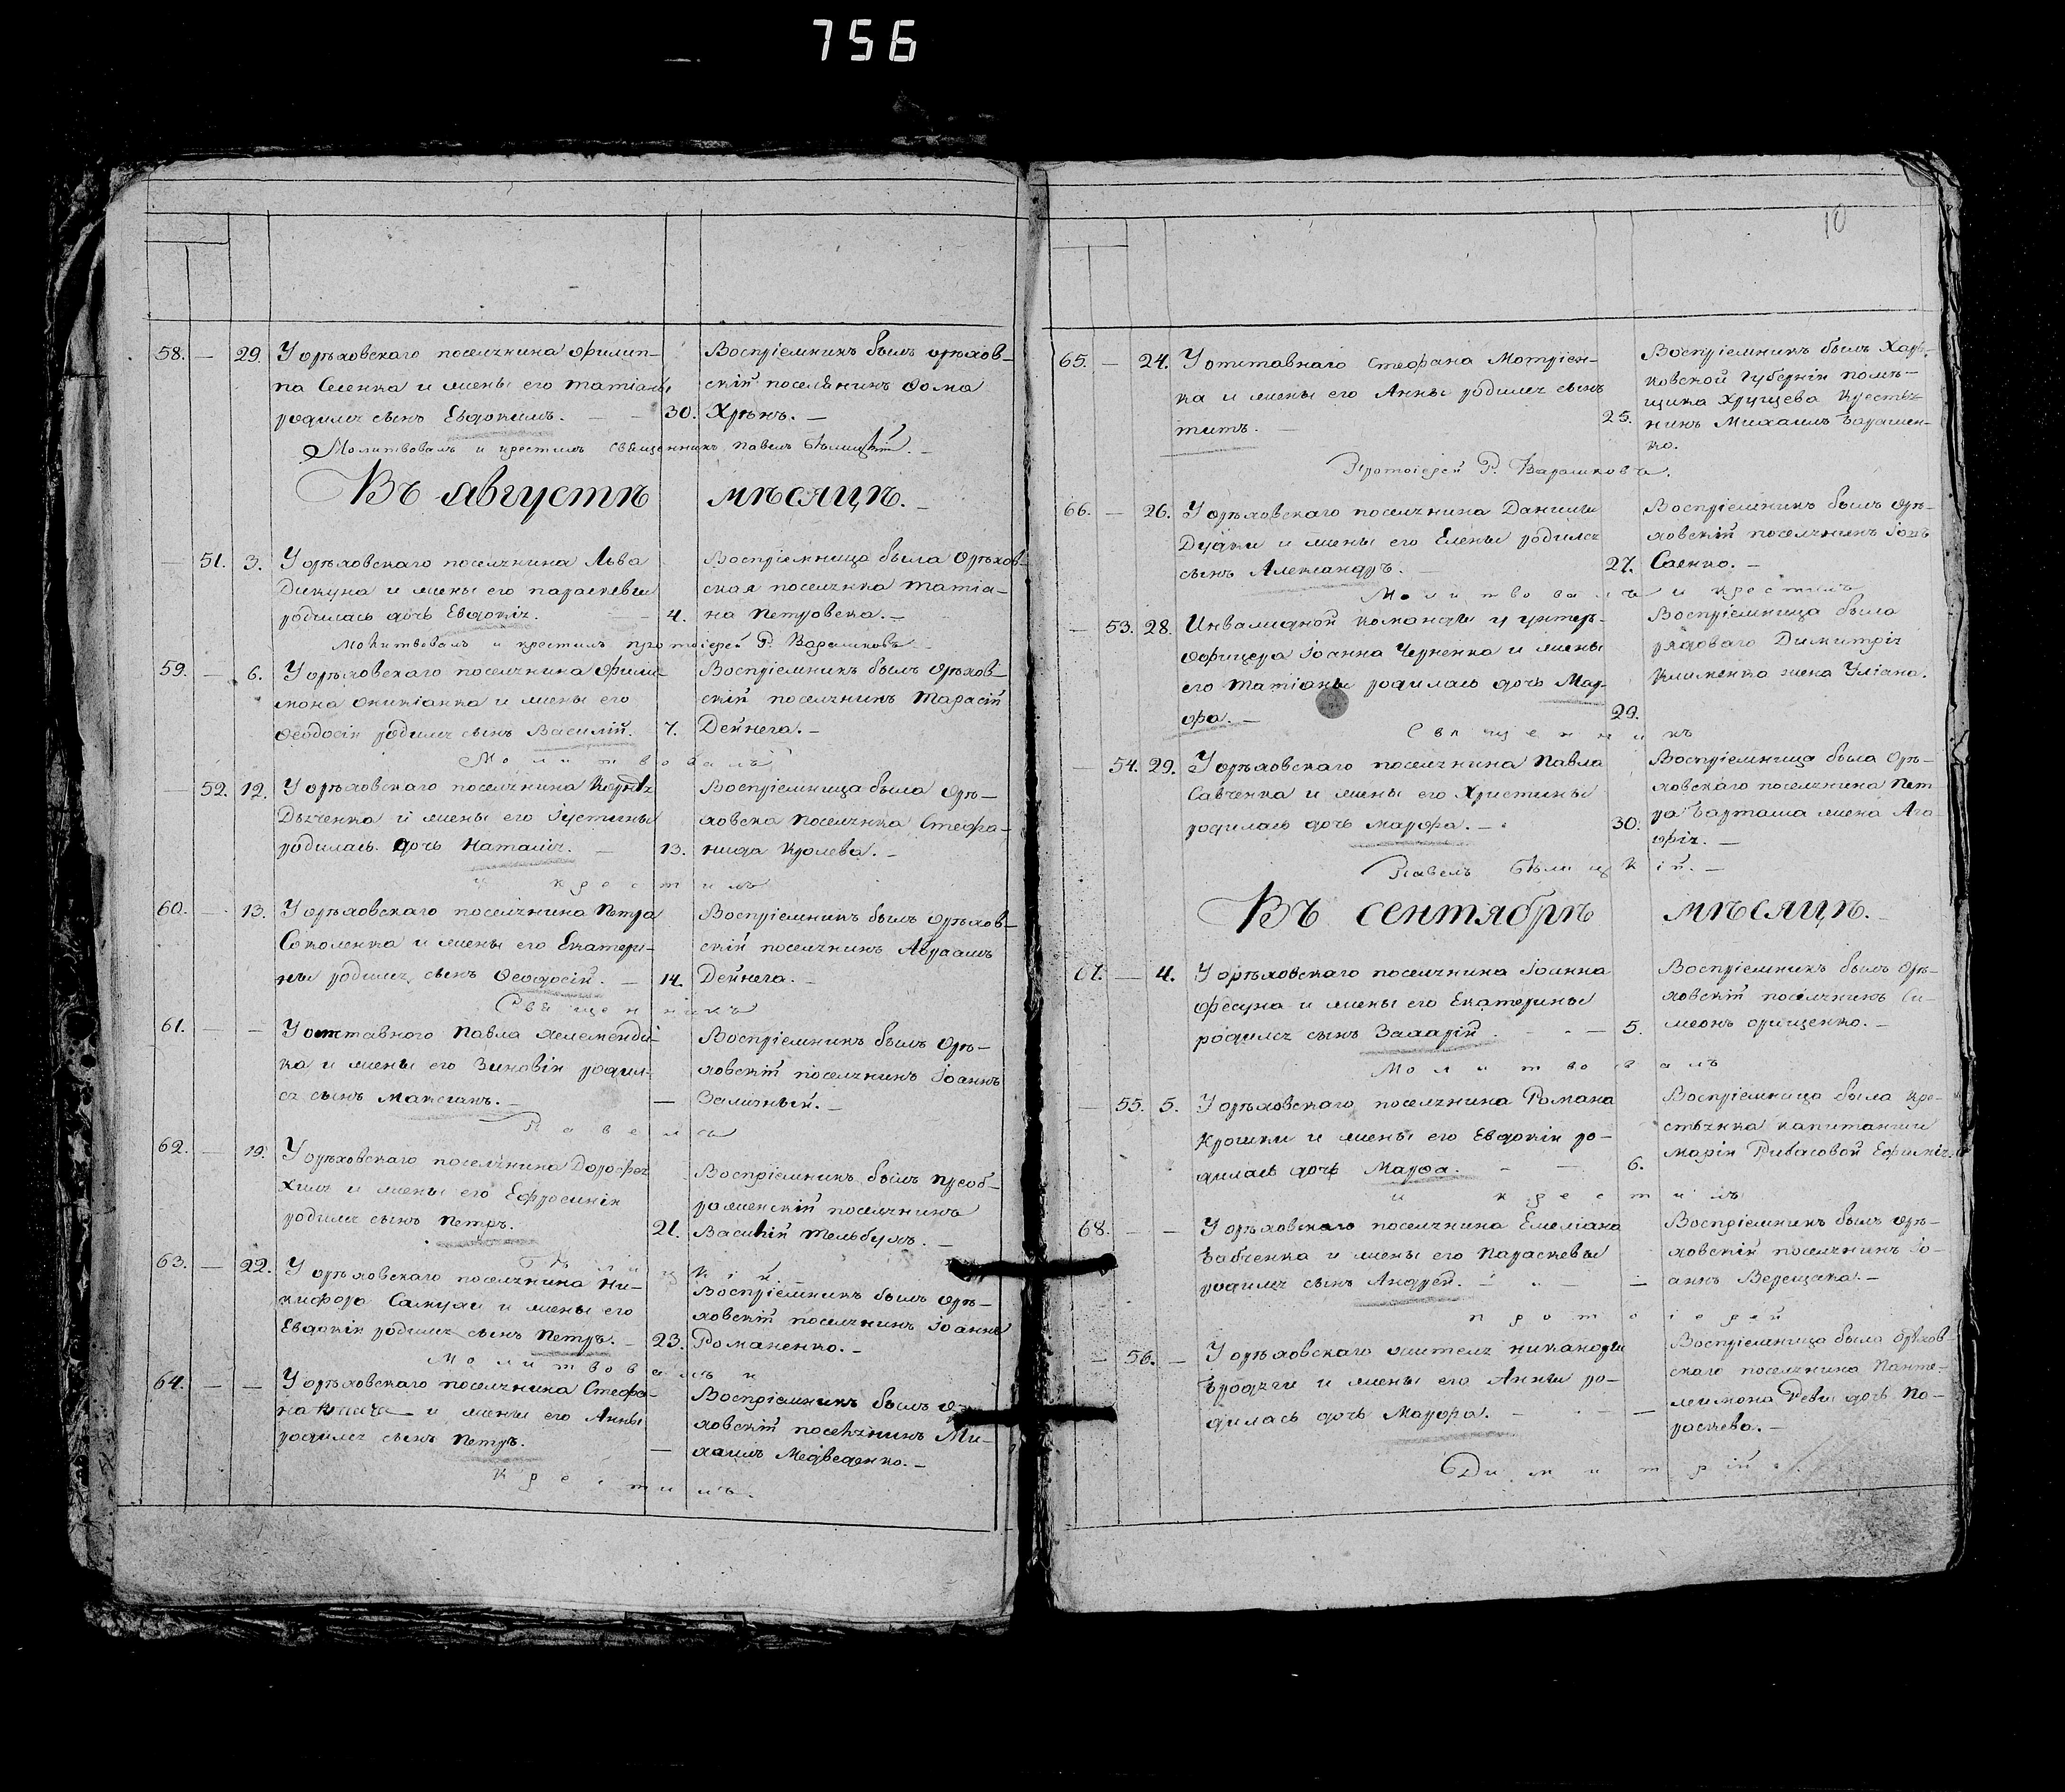 756
58. — 29. У орѣховскаго поселянина Филип-
па Сленка и жены его Татіаны
родился сынъ Евдокимъ. — — 30.
Воспріемникъ былъ орѣхов-
скій поселянинъ Фома
Хрѣнъ. —
Молитвовалъ и крестилъ священникъ Павелъ Бѣлицкій. —
Въ августѣ мѣсяцѣ. —
— 51. 3. У орѣховскаго поселянина Льва
Дикуна и жены его Параскевы
родилась дочь Евдокія. — 4.
Воспріемница была Орѣхов-
ская поселянка Татіа-
на Петровска. —
Молитвовалъ и крестилъ протоіерей Р. Варшиковъ.
59. — 6. У орѣховскаго поселянина Фили-
мона Оникіанка и жены его
Феодосіи родился сынъ Василій. 7.
Воспріемникъ былъ Орѣхов-
скій поселянинъ Тарасій
Дейнега. —
Молитвовалъ
— 52. 12. У орѣховскаго поселянина
Дяченка и жены его Іустины
родилась дочь Наталія. — 13.
Воспріемница была Орѣ-
ховска поселянка Стефа-
нида Кролева. —
и крестилъ
60. — 13. У орѣховскаго поселянина Петра
Соколенка и жены его Екатери-
ны родился сынъ Феодосій. — 14.
Воспріемникъ былъ Орѣхов-
скій поселянинъ Авраамъ
Дейнега. —
Священникъ
61. — — У отставного Павла
ка и жены его Зиновіи родил-
ся сынъ Максимъ. — —
Воспріемникъ былъ Орѣ-
ховскій поселянинъ Іоаннъ
Зализный. —
Павелъ
62. — 19. У орѣховскаго поселянина Дорофея
Хиля и жены его Ефросиніи
родился сынъ Петръ. 21.
Воспріемникъ былъ Преоб-
раженскій поселянинъ
Василій Тельбухъ. —
Бѣлицкій. —
63. — 22. У орѣховскаго поселянина Ни-
кифора Самуси и жены его
Евдокіи родился сынъ Петръ. — 23.
Воспріемникъ былъ Орѣ-
ховскій поселянинъ Іоаннъ
Романенко. —
Молитвовалъ и
64. — — У орѣховскаго поселянина Стефа-
на Ткача и жены его Анны
родился сынъ Петръ. —
Воспріемникъ былъ О-
ховскій поселянинъ Ми-
хаилъ Медведенко. —
крестилъ.
10
65. — 24. У отставнаго Стефана Мотріен-
ка и жены его Анны родился сынъ
Титъ. — 25.
Воспріемникъ былъ Харь-
ковской Губерніи помѣ-
щика Хрущева крестья-
нинъ Михаилъ Барашен-
ко.
Протоіерей Р. Варшиковъ.
66. — 26. У орѣховскаго поселянина Даніила
Дудки и жены его Елены родился
сынъ Александръ. — 27.
Воспріемникъ былъ Орѣ-
ховскій поселянинъ Іовъ
Саенко. —
Молитвовалъ и крестилъ
— 53. 28. Инвалидной команды у унтеръ-
офицера Іоанна Черненка и жены
его Татіаны родилась дочь Мар-
фа. — 29.
Воспріемница была
рядоваго Димитрія
Клименка жена Уліана.
Священникъ
— 54. 29. У орѣховскаго поселянина Павла
Савченка и жены его Христины
родилась дочь Марфа. — 30.
Воспріемница была Орѣ-
ховскаго поселянина Пет
ра Барташа жена Ага-
фія. —
Павелъ Бѣлицкій. —
Въ сентябрѣ мѣсяцѣ. —
67. — 4. У орѣховскаго поселянина Іоанна
Фесуна и жены его Екатерины
родился сынъ Захарій. — 5.
Воспріемникъ былъ Орѣ-
ховскій поселянинъ Си-
меонъ Орищенко. —
Молитвовалъ
— 55. 5. У орѣховскаго поселянина Романа
Крошки и жены его Евдокіи ро-
дилась дочь Марфа. — — 6.
Воспріемница была кре-
стьянка капитанши
Маріи Рибасовой Ефимія.
и крестилъ
68. — — У орѣховскаго поселянина Емеліана
Бабченка и жены его Параскевы
родился сынъ Андрей. — —
Воспріемникъ былъ Орѣ-
ховскій поселянинъ Іо-
аннъ Верещака. —
протоіерей
— 56. — У орѣховскаго жителя Никанора
Бродяги и жены его Анны ро-
дилась дочь Марфа. — —
Воспріемница была Орѣхов-
скаго поселянина Панте-
леимона Ревы дочь Па-
раскева. —
Димитрій.